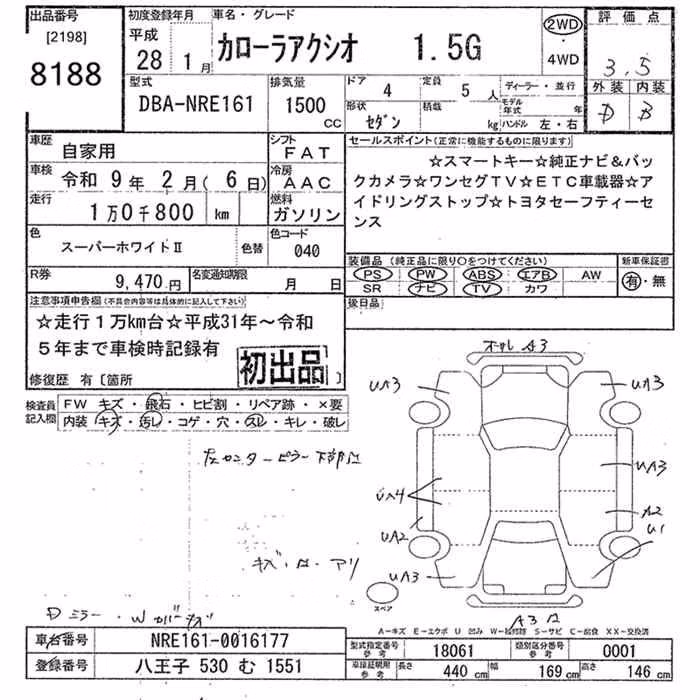 出品番号
[2198]
8188
初度登録年月
平成
28 1月
車名・グレード
カローラアクシオ 1.5G
2WD
・
4WD
評価点
3.5
外装 内装
D B
型式
DBA-NRE161
排気量
1500
CC
ドア 4
定員 5 人
形状 セダン
積載 kg
ディーラー・並行
モデル年式 年
ハンドル 左・右
車歴 自家用
シフト FAT
車検 令和 9年 2月( 6日)
冷房 AAC
走行 1万0千800 km
燃料 ガソリン
色 スーパーホワイトⅡ 色替
色コード 040
R券 9,470円
名変通知期限 月 日
セールスポイント(正常に機能するものに限ります)
☆スマートキー☆純正ナビ&バッ
クカメラ☆ワンセグTV☆ETC車載器☆ア
イドリングストップ☆トヨタセーフティーセ
ンス
装備品(純正品に限り○をつけてください)
PS PW ABS エアB AW
SR ナビ TV カワ
新車保証書
有・無
後日品
注意事項申告欄(不具合内容等は具体的に記入して下さい)
☆走行1万km台☆平成31年〜令和
5年まで車検時記録有
初出品
修復歴 有〔箇所 〕
検査員記入欄
FW キズ・飛石・ヒビ割・リペア跡・×要
内装 キズ・汚レ・コゲ・穴・スレ・キレ・破レ
左センターピラー下部凹
キズ・凹・アリ
Dミラー・Wカバーキズ
A3
UA3
UA3
UA4
UA3
UA2
A2
U1
UA3
A3凹
スペア
A−キズ E−エクボ U 凹み W−補修跡 S−サビ C−腐食 XX−交換済
車台番号 NRE161-0016177
登録番号 八王子 530 む 1551
型式指定番号 参考 18061
類別区分番号 参考 0001
車検証明用 参考
長さ 440 cm 幅 169 cm 高さ 146 cm